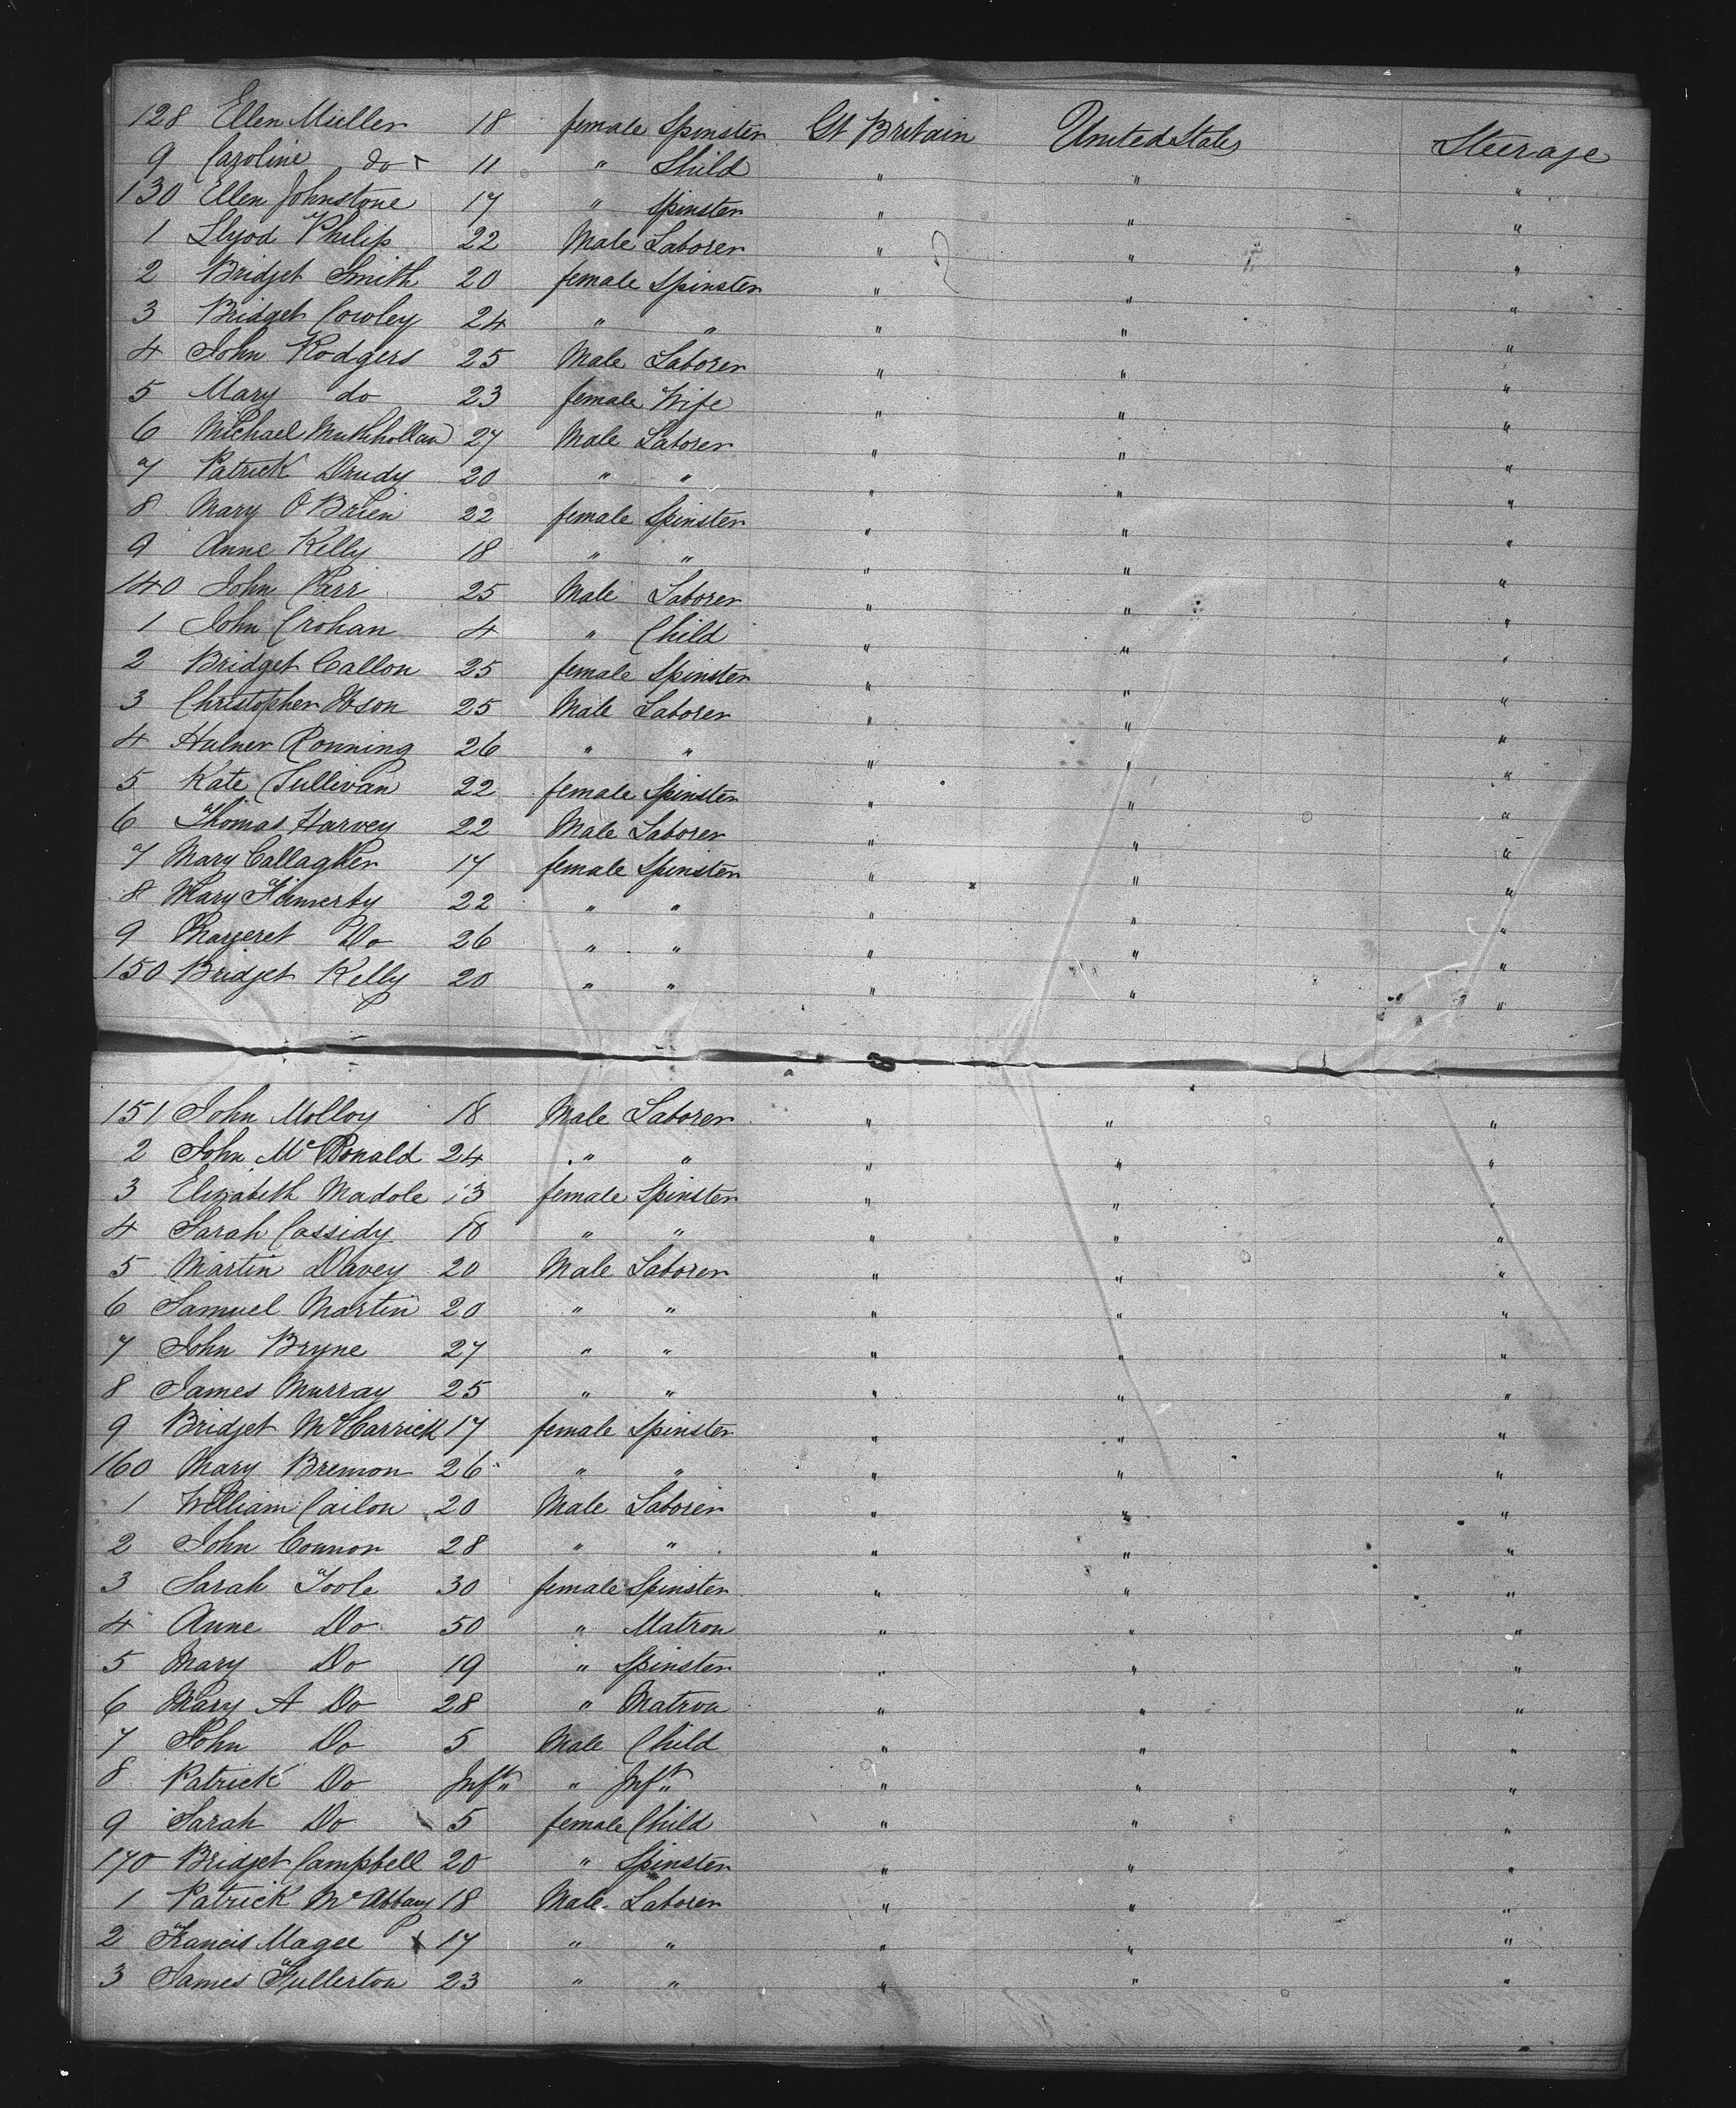 128 Ellen Muller 18 female Spinster Gt Britain United States Steerage
9 Caroline do 11 " Child " " "
130 Ellen Johnstone 17 " Spinster " " "
1 Llyod Philip 22 Male Laborer " " "
2 Bridget Smith 20 female Spinster " " "
3 Bridget Cowley 24 " " " " "
4 John Rodgers 25 Male Laborer " " "
5 Mary do 23 female Wife " " "
6 Michael 27 Male Laborer " " "
7 Patrick Drudy 20 " " " " "
8 Mary O'Brien 22 female Spinster " " "
9 Anne Kelly 18 " " " " "
140 John Carr 25 Male Laborer " " "
1 John Crohan 4 " Child " " "
2 Bridget Callon 25 female Spinster " " "
3 Christopher 25 Male Laborer " " "
4 Ronning 26 " " " " "
5 Kate Sullivan 22 female Spinster " " "
6 Thomas Harvey 22 Male Laborer " " "
7 Mary Callagher 17 female Spinster " " "
8 Mary 22 " " " " "
9 Margeret Do 26 " " " " "
150 Bridget Kelly 20 " " " " "
151 John Molloy 18 Male Laborer " " "
2 John McDonald 24 " " " " "
3 Elizabeth Madole 13 female Spinster " " "
4 Sarah Cassidy 18 " " " " "
5 Martin Davey 20 Male Laborer " " "
6 Samuel Martin 20 " " " " "
7 John Bryne 27 " " " " "
8 James Murray 25 " " " " "
9 Bridget McHarrick 17 female Spinster " " "
160 Mary Bremon 26 " " " " "
1 William Cailon 20 Male Laborer " " "
2 John Connor 28 " " " " "
3 Sarah Toole 30 female Spinster " " "
4 Anne Do 50 " Matron " " "
5 Mary Do 19 " Spinster " " "
6 Mary A Do 28 " Matron " " "
7 John Do 5 Male Child " " "
8 Patrick Do Inft " Inft " " "
9 Sarah Do 5 female Child " " "
170 Bridget Campbell 20 " Spinster " " "
1 Patrick 18 Male Laborer " " "
2 Francis Magee 17 " " " " "
3 James Fullerton 23 " " " " "